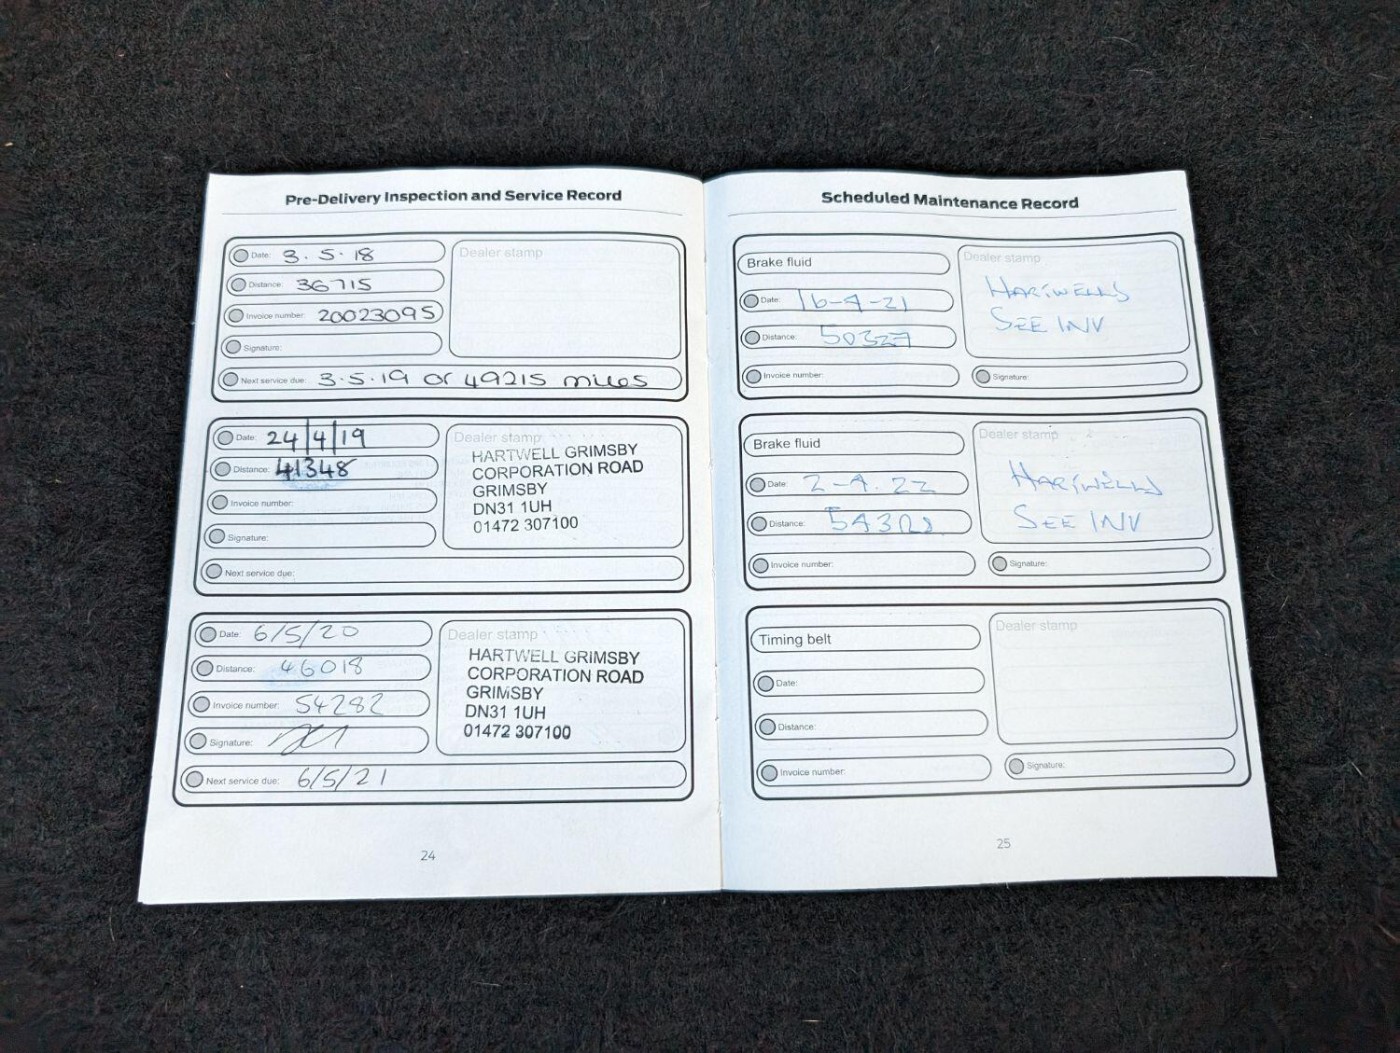 Pre-Delivery Inspection and Service Record
Date: 3.5.18
Distance: 36715
Invoice number: 20023095
Signature:
Next service due: 3.5.19 or 49215 miles
Dealer stamp
Date: 24/4/19
Distance: 41348
Invoice number:
Signature:
Next service due:
Dealer stamp
HARTWELL GRIMSBY
CORPORATION ROAD
GRIMSBY
DN31 1UH
01472 307100
Date: 6/5/20
Distance: 46018
Invoice number: 54282
Signature:
Next service due: 6/5/21
Dealer stamp
HARTWELL GRIMSBY
CORPORATION ROAD
GRIMSBY
DN31 1UH
01472 307100
24
Scheduled Maintenance Record
Brake fluid
Date: 16-4-21
Distance: 50327
Invoice number:
Dealer stamp
HARTWELLS
SEE INV
Signature:
Brake fluid
Date: 2-4-22
Distance:
Invoice number:
Dealer stamp
HARTWELLS
SEE INV
Signature:
Timing belt
Date:
Distance:
Invoice number:
Dealer stamp
Signature:
25